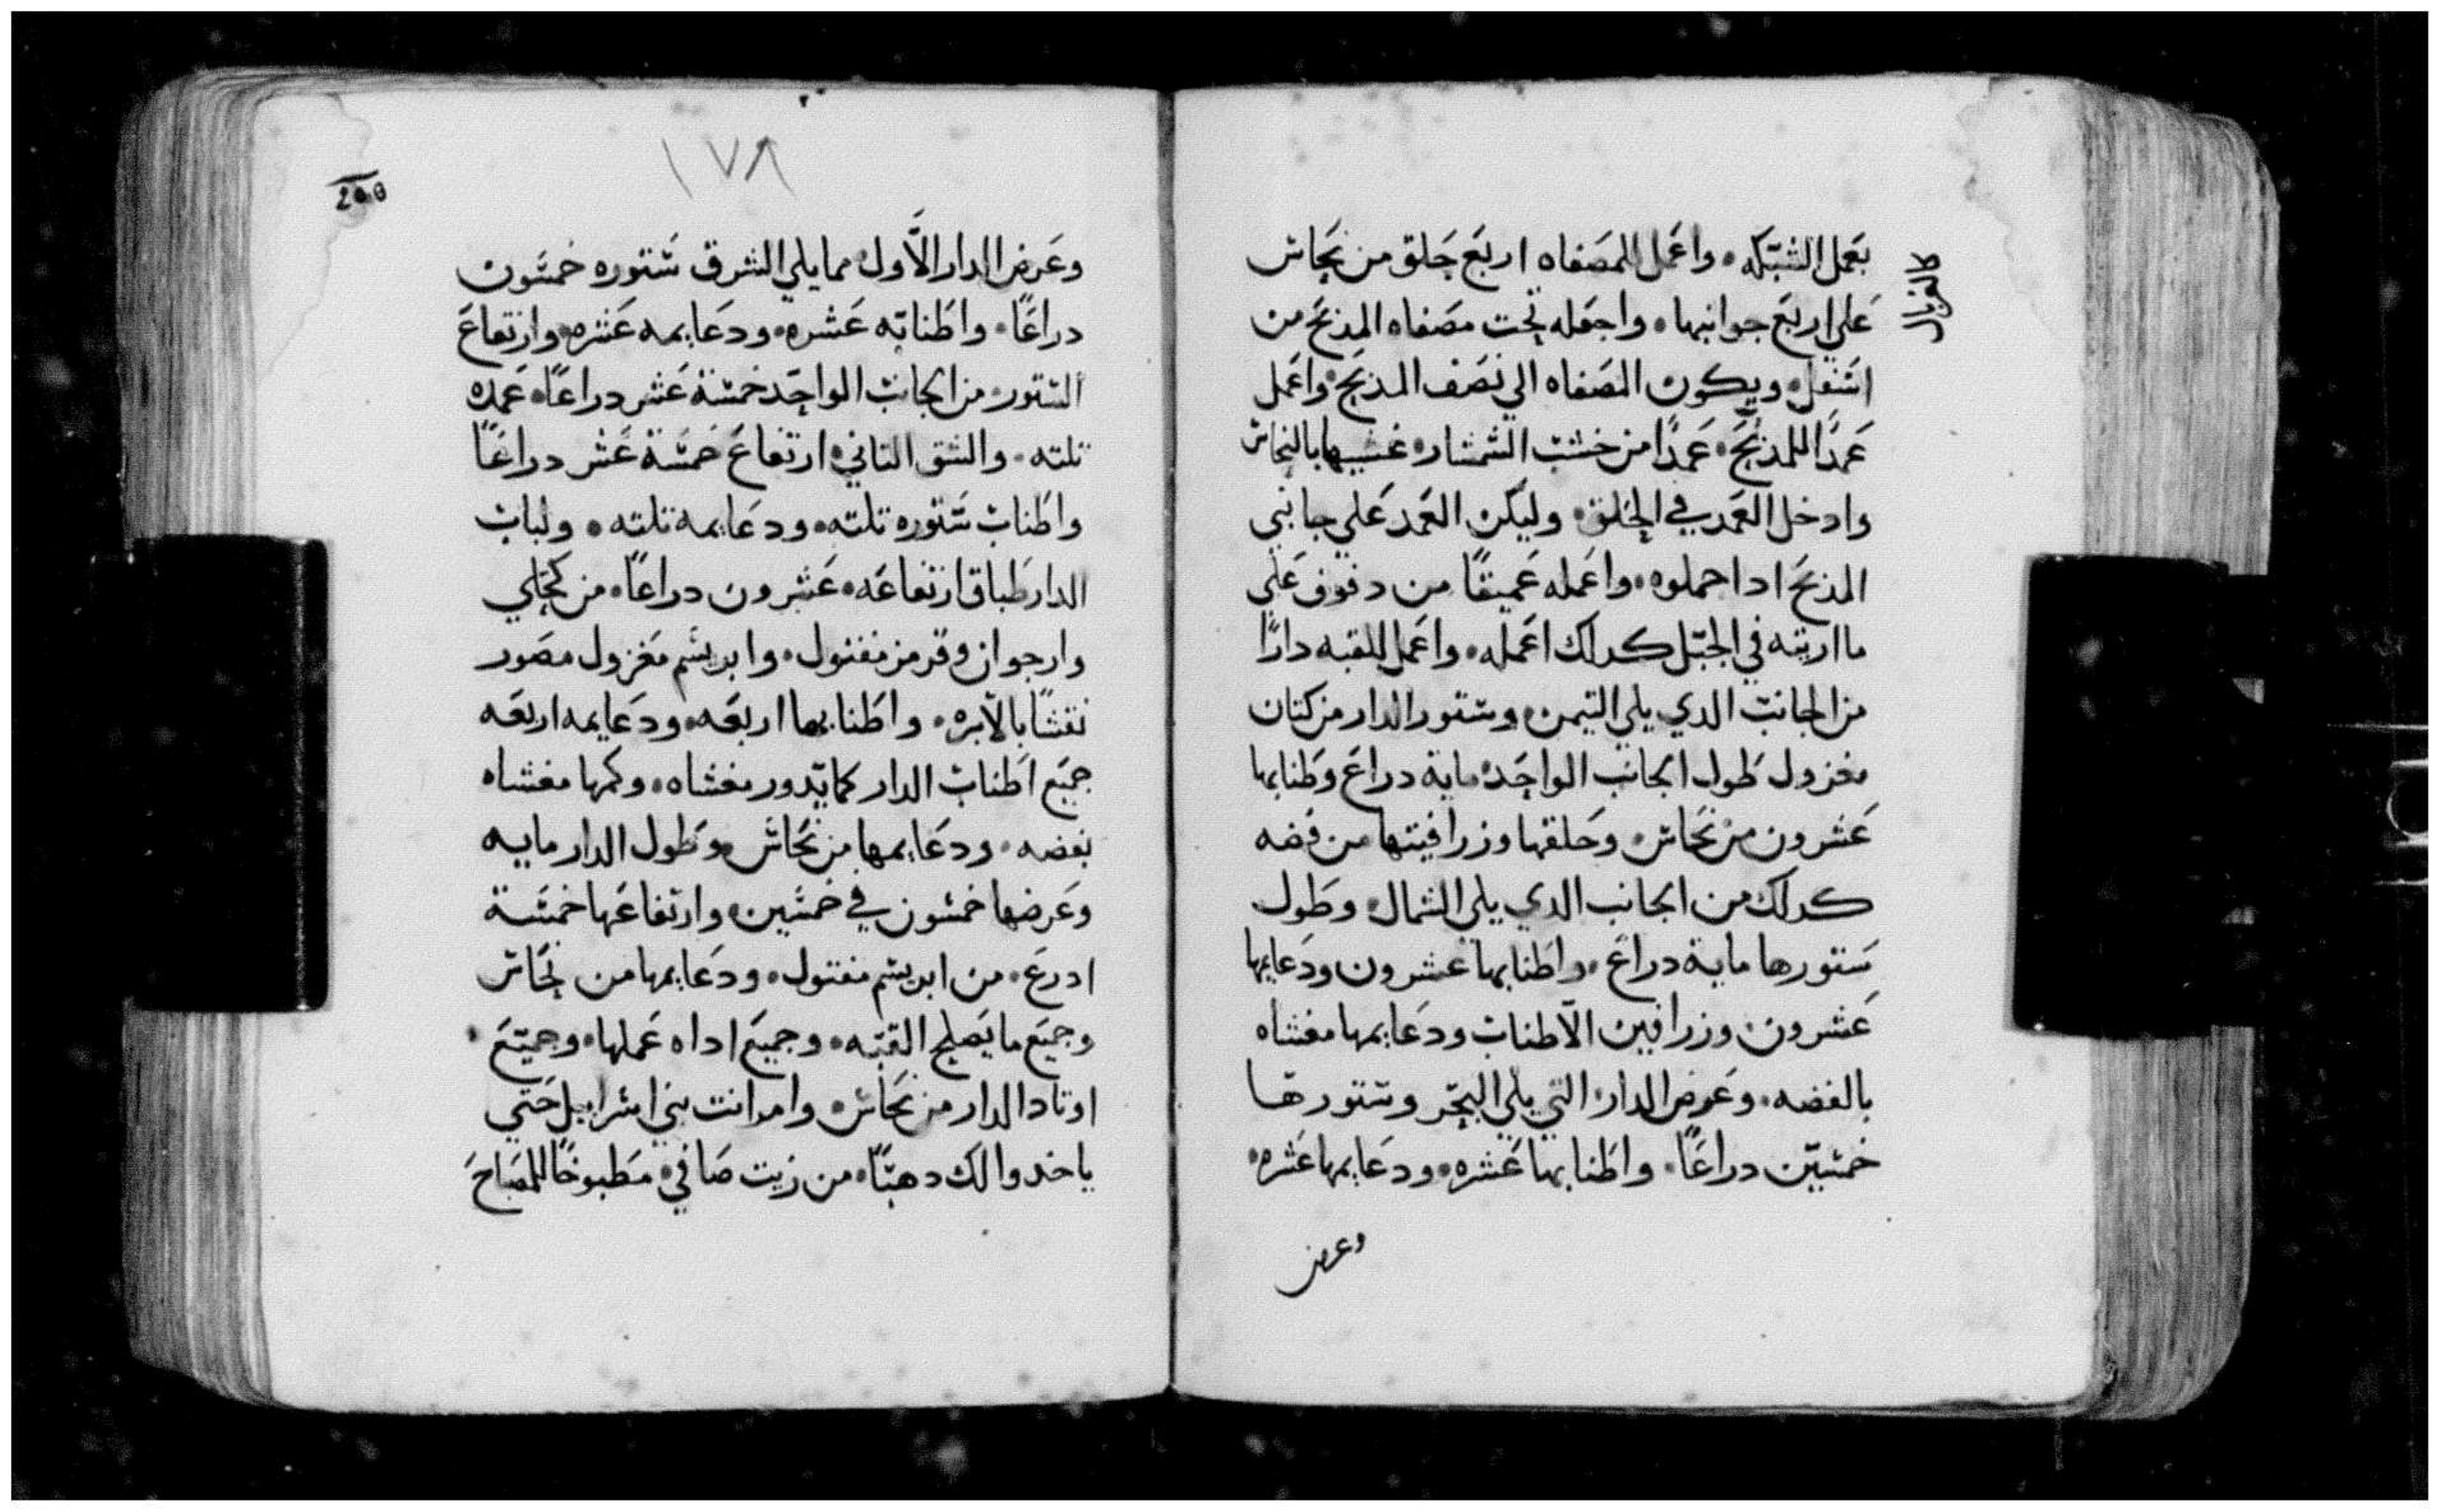 كالغربال
بعمل الشبكه. واعمل للمصفاه اربع حلق من نحاس
على اربع جوانبها. واجعله تحت مصفاه المذبح من
اسفل. ويكون المصفاه الي نصف المذبح. واعمل
عمدًا للمذبح. عمدًا من خشب الشمشار. غشيها بالنحاس
وادخل العمد في الحلق. وليكن العمد علي جانبي
المذبح ادا حملوه. واعمله عميقًا من دفوف على
ما اريته في الجبل كدلك اعمله. واعمل للقبه دارًا
من الجانب الدي يلي التيمن. وستور الدار من كتان
مغزول طول الجانب الواحد ماية دراع وطنابها
عشرون من نحاس. وحلقها وزرافينها من فضه
كدلك من الجانب الدي يلي الشمال. وطول
ستورها ماية دراع. واطنابها عشرون ودعايمها
عشرون. وزرافين الاطناب ودعايمها مغشاه
بالفضه. وعرض الدار. التي يلي البحر وستورها
خمسين دراعًا. واطنابها عشره. ودعايمها عشره.
وعرض
١٧٨
وعرض الدار الأول مما يلي الشرق ستوره خمسون
دراعًا. واطنابه عشره. ودعايمه عشره. وارتفاع
الستور. من الجانب الواحد خمسة عشر دراعًا. عمده
تلته. والشق التاني. ارتفاع خمسة عشر دراعًا
واطناب ستوره تلته. ودعايمه تلته. ولباب
الدار طباق ارتفاعه. عشرون دراعًا. من كحلي
وارجوان وقرمز مفتول. وابريسم مغزول مصور
نقشًا بالابره. واطنابها اربعه. ودعايمه اربعه
جميع اطناب الدار كما يدور مغشاه. وكمها مغشاه
بفضه. ودعايمها من نحاس. وطول الدار مايه
وعرضها خمسون في خمسين. وارتفاعها خمسة
ادرع. من ابريسم مفتول. ودعايمها من نحاس
وجميع ما يصلح القبه. وجميع اداه عملها. وجميع.
اوتاد الدار من نحاس. وامر انت بني اسراييل حتي
ياخدوا لك دهنًا. من زيت صافي. مطبوخًا للمصباح